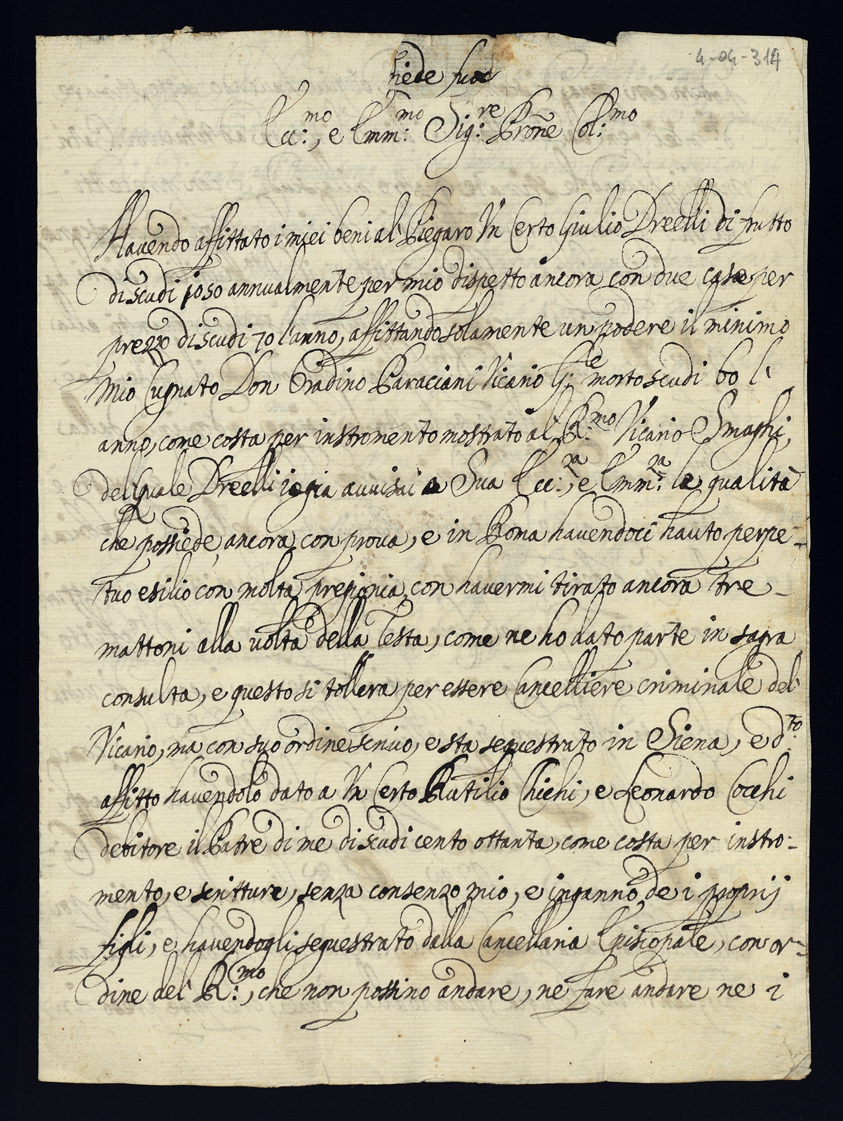 4-04-314
Ecc:mo, e Emm:mo Sig:re Prone Col:mo
Havendo affittato i miei beni al Piegaro Un Certo Giulio Dreelli di frutto
di scudi 1050 annualmente, per mio dispetto ancora con due case per
prezzo di scudi 70 l'anno, affittando solamente un podere il minimo
Mio Cugnato Don Paraciani Vicario morto scudi 60 l'
anno, come costa per instromento mostrato al R:mo Vicario Smaghi,
del quale Dreelli io gia avvisai a Sua Ecc:za, e Emm:za le qualità
che possiede, ancora con prova, e in Roma havendoci hauto perpe-
tuo esilio con molta con havermi tirato ancora tre
mattoni alla volta della Testa, come ne ho dato parte in sagra
consulta, e questo si tollera per essere Cancelliere criminale del
Vicario, ma con suo ordine scrivo, e sta sequestrato in Siena, e d:to
affitto havendolo dato a Un Certo Rutilio Chichi, e Leonardo Cocchi
debitore il Patre di me di scudi cento ottanta, come costa per instro-
mento, e scritture, senza consenzo mio, e inganno de i proprij
figli, e havendogli sequestrato dalla Cancellaria Episcopale, con or-
dine del R:mo, che non possino andare, ne fare andare ne i